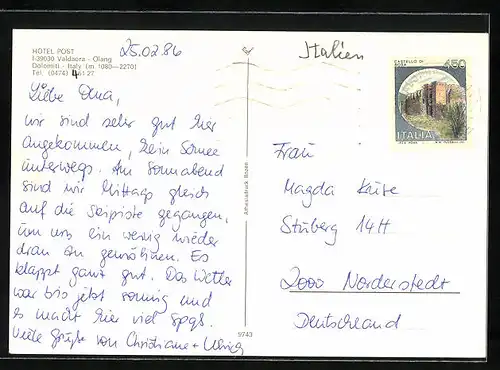 HOTEL POST
I-39030 Valdaora - Olang
Dolomiti - Italy (m 1080—2270)
Tel. (0474) 46127
25.02.86
Liebe Oma,
wir sind sehr gut hier
angekommen, kein Schnee
unterwegs. Am Sonnabend
sind wir Mittags gleich
auf die Skipiste gegangen,
um uns ein wenig wieder
dran zu gewöhnen. Es
klappt ganz gut. Das Wetter
war bis jetzt sonnig und
es macht hier viel Spaß.
Viele Grüße von Christiane + Ulrich
Athesiadruck Bozen
9743
Italien
CASTELLO DI
450
ITALIA
Frau
Magda Kruse
Stüberg 14H
2000 Norderstedt
Deutschland